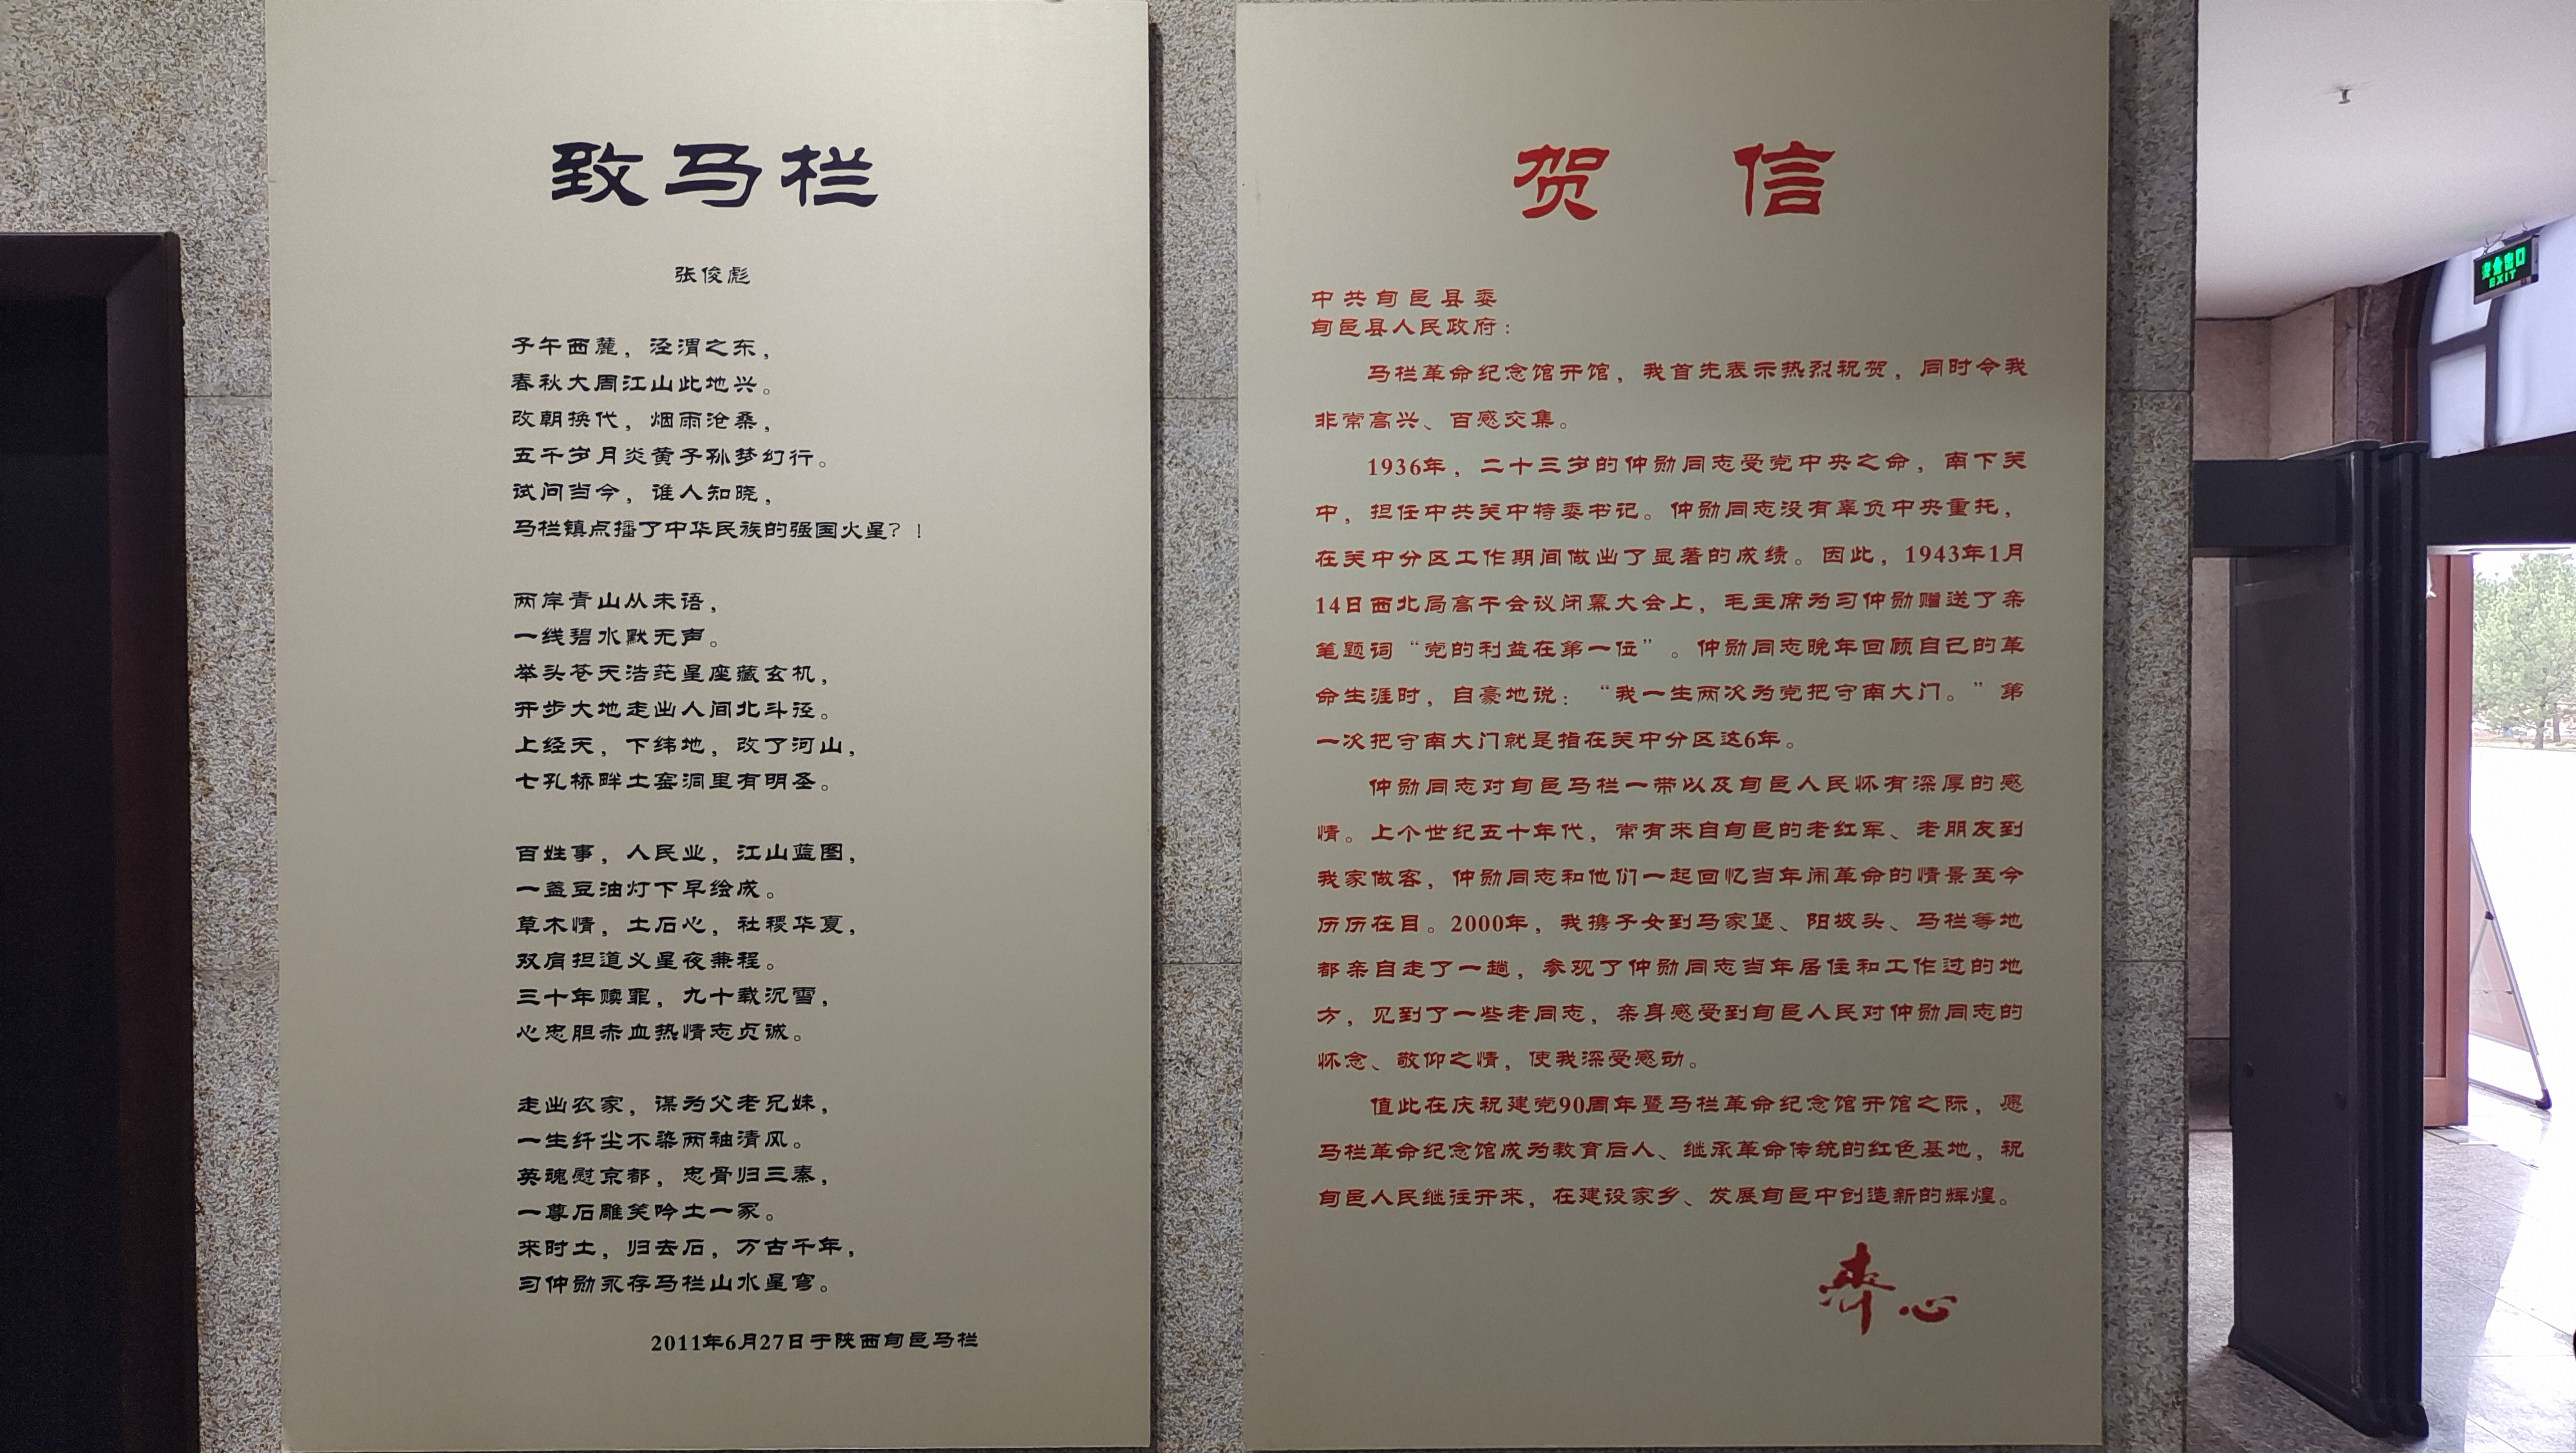 致马栏
张俊彪
子午西麓，泾渭之东，
春秋大周江山此地兴。
改朝换代，烟雨沧桑，
五千岁月炎黄子孙梦幻行。
试问当今，谁人知晓，
马栏镇点播了中华民族的强国火星？！
两岸青山从未语，
一线碧水默无声。
举头苍天浩茫星座藏玄机，
开步大地走出人间北斗径。
上经天，下纬地，改了河山，
七孔桥畔土窑洞里有明圣。
百姓事，人民业，江山蓝图，
一盏豆油灯下早绘成。
草木情，土石心，社稷华夏，
双肩担道义星夜兼程。
三十年赎罪，九十载沉雪，
心忠胆赤血热情志贞诚。
走出农家，谋为父老兄妹，
一生纤尘不染两袖清风。
英魂慰京都，忠骨归三秦，
一尊石雕笑吟土一冢。
来时土，归去石，万古千年，
习仲勋永存马栏山水星穹。
2011年6月27日于陕西旬邑马栏
贺 信
中共旬邑县委
旬邑县人民政府：
马栏革命纪念馆开馆，我首先表示热烈祝贺，同时令我
非常高兴、百感交集。
1936年，二十三岁的仲勋同志受党中央之命，南下关
中，担任中共关中特委书记。仲勋同志没有辜负中央重托，
在关中分区工作期间做出了显著的成绩。因此，1943年1月
14日西北局高干会议闭幕大会上，毛主席为习仲勋赠送了亲
笔题词“党的利益在第一位”。仲勋同志晚年回顾自己的革
命生涯时，自豪地说：“我一生两次为党把守南大门。”第
一次把守南大门就是指在关中分区这6年。
仲勋同志对旬邑马栏一带以及旬邑人民怀有深厚的感
情。上个世纪五十年代，常有来自旬邑的老红军、老朋友到
我家做客，仲勋同志和他们一起回忆当年闹革命的情景至今
历历在目。2000年，我携子女到马家堡、阳坡头、马栏等地
都亲自走了一趟，参观了仲勋同志当年居住和工作过的地
方，见到了一些老同志，亲身感受到旬邑人民对仲勋同志的
怀念、敬仰之情，使我深受感动。
值此在庆祝建党90周年暨马栏革命纪念馆开馆之际，愿
马栏革命纪念馆成为教育后人、继承革命传统的红色基地，祝
旬邑人民继往开来，在建设家乡、发展旬邑中创造新的辉煌。
齊心
安全出口
EXIT